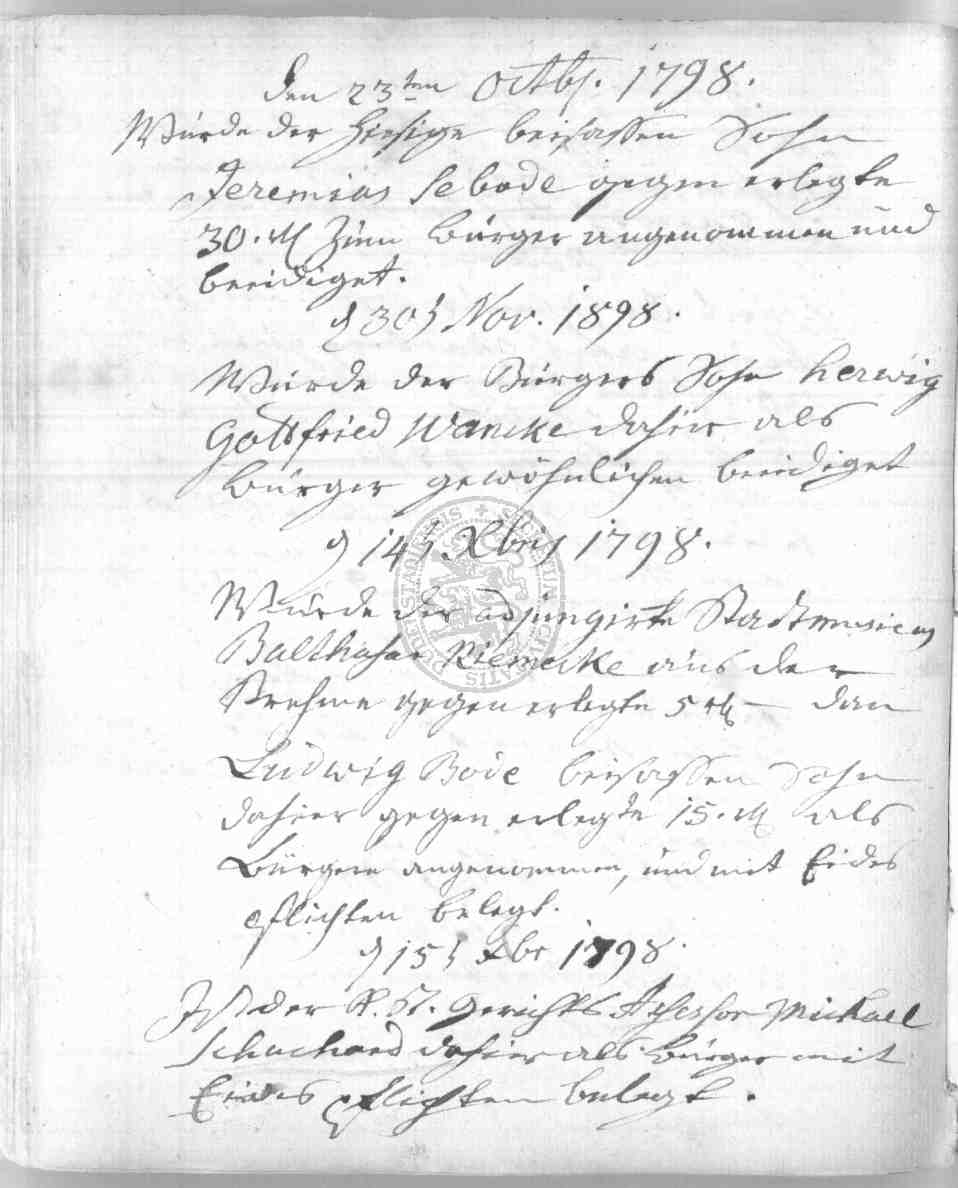 den 23ten Octbr. 1798.
Würde der hiesige beisassen Sohn
Jeremias Sebode gegen erlegte
30. Zum bürger angenommen und
beeidiget.
d 30t Nov. 1898.
Würde der Bürgers Sohn Herwig
Gottfried Wancke dahier als
bürger gewöhnlichen beeidiget
d 14t Xbris 1798.
Würde der adjungirte Stadtmusicus
Balthasar Riemecke aus der
gegen erlegte 5 dan
Ludwig Bode beisassen Sohn
dahier gegen erlegte 15. als
Bürgere angenommen, und mit Eides
pflichten belegt.
d 15t Xbr 1798.
Ist der Gerichts Assessor Michael
Schuchard dahier als bürger mit
Eides pflichten belegt.